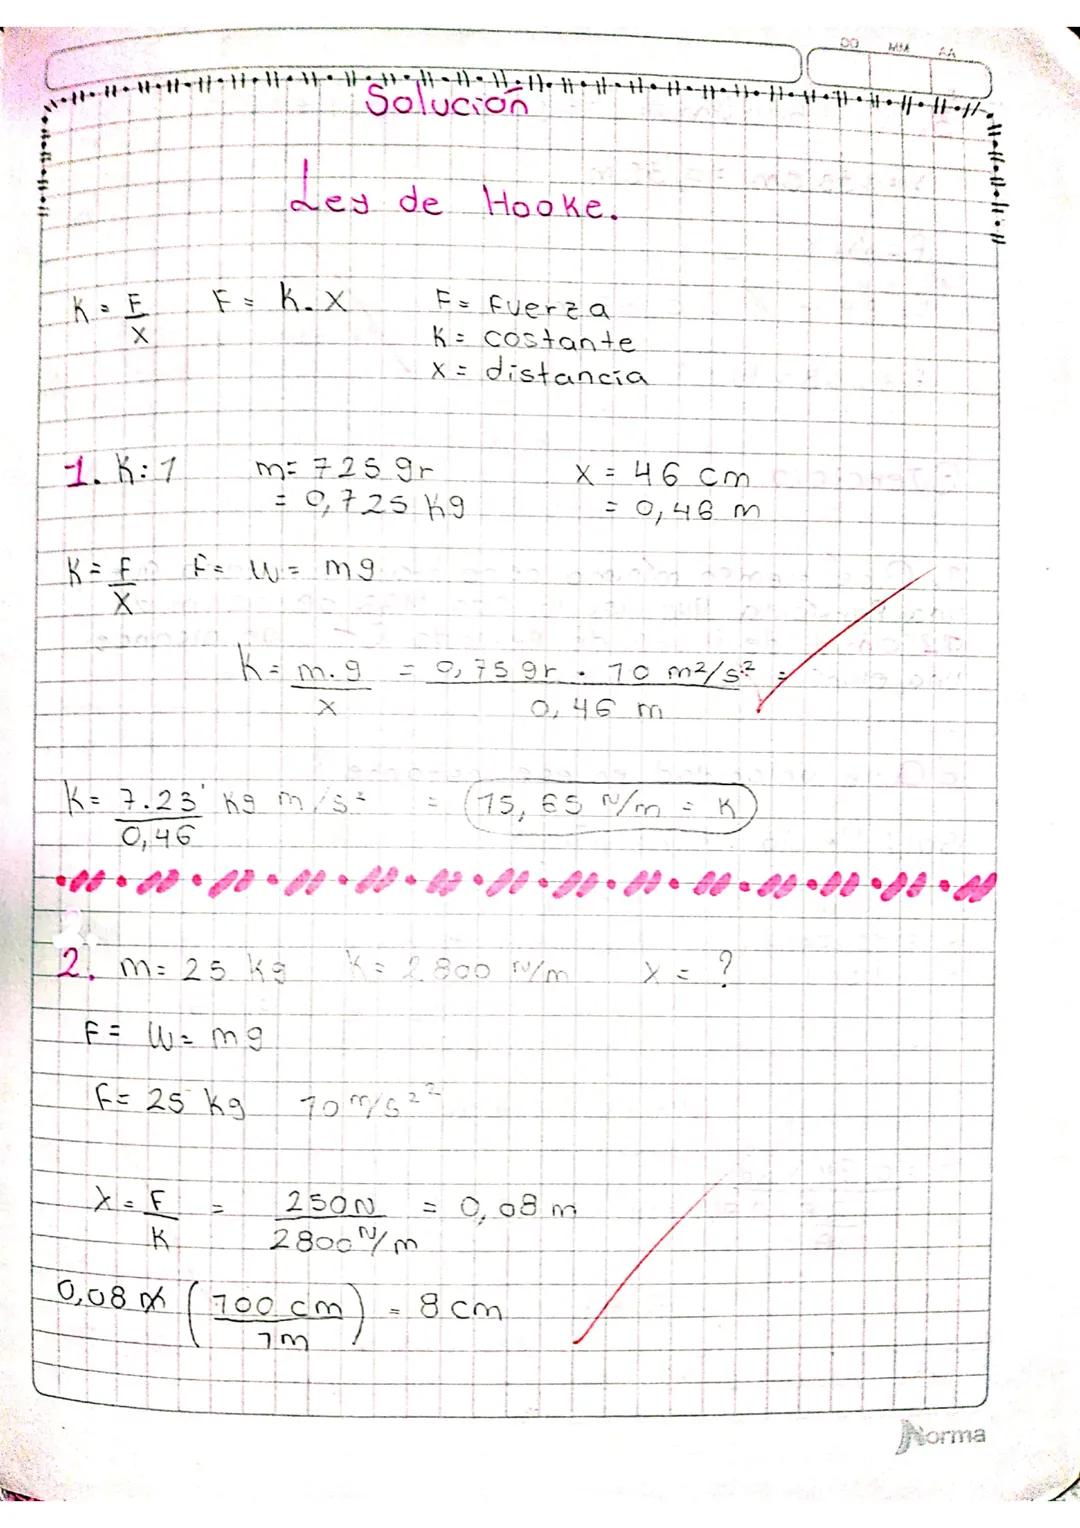 DD MM AA
Solución
Ley de Hooke.
K = F/X F = K. X F= Fuerza
K= costante
X= distancia
1. K: ? m= 725 gr X = 46 cm
= 0,725 Kg = 0,46 m
K = F/X F= W= mg
K= m.g/x = 0,75 gr . 10 m²/s:² / 0,46 m =
K= 7.25 Kg m/s² / 0,46 = 15,65 N/m = K
2. m= 25 Kg K= 2800 N/m X = ?
F= W= mg
F= 25 Kg 10 m/s²²
X = F/K = 250N / 2800 N/m = 0,08 m
0,08 m (100 cm / 1m) = 8 cm
Norma